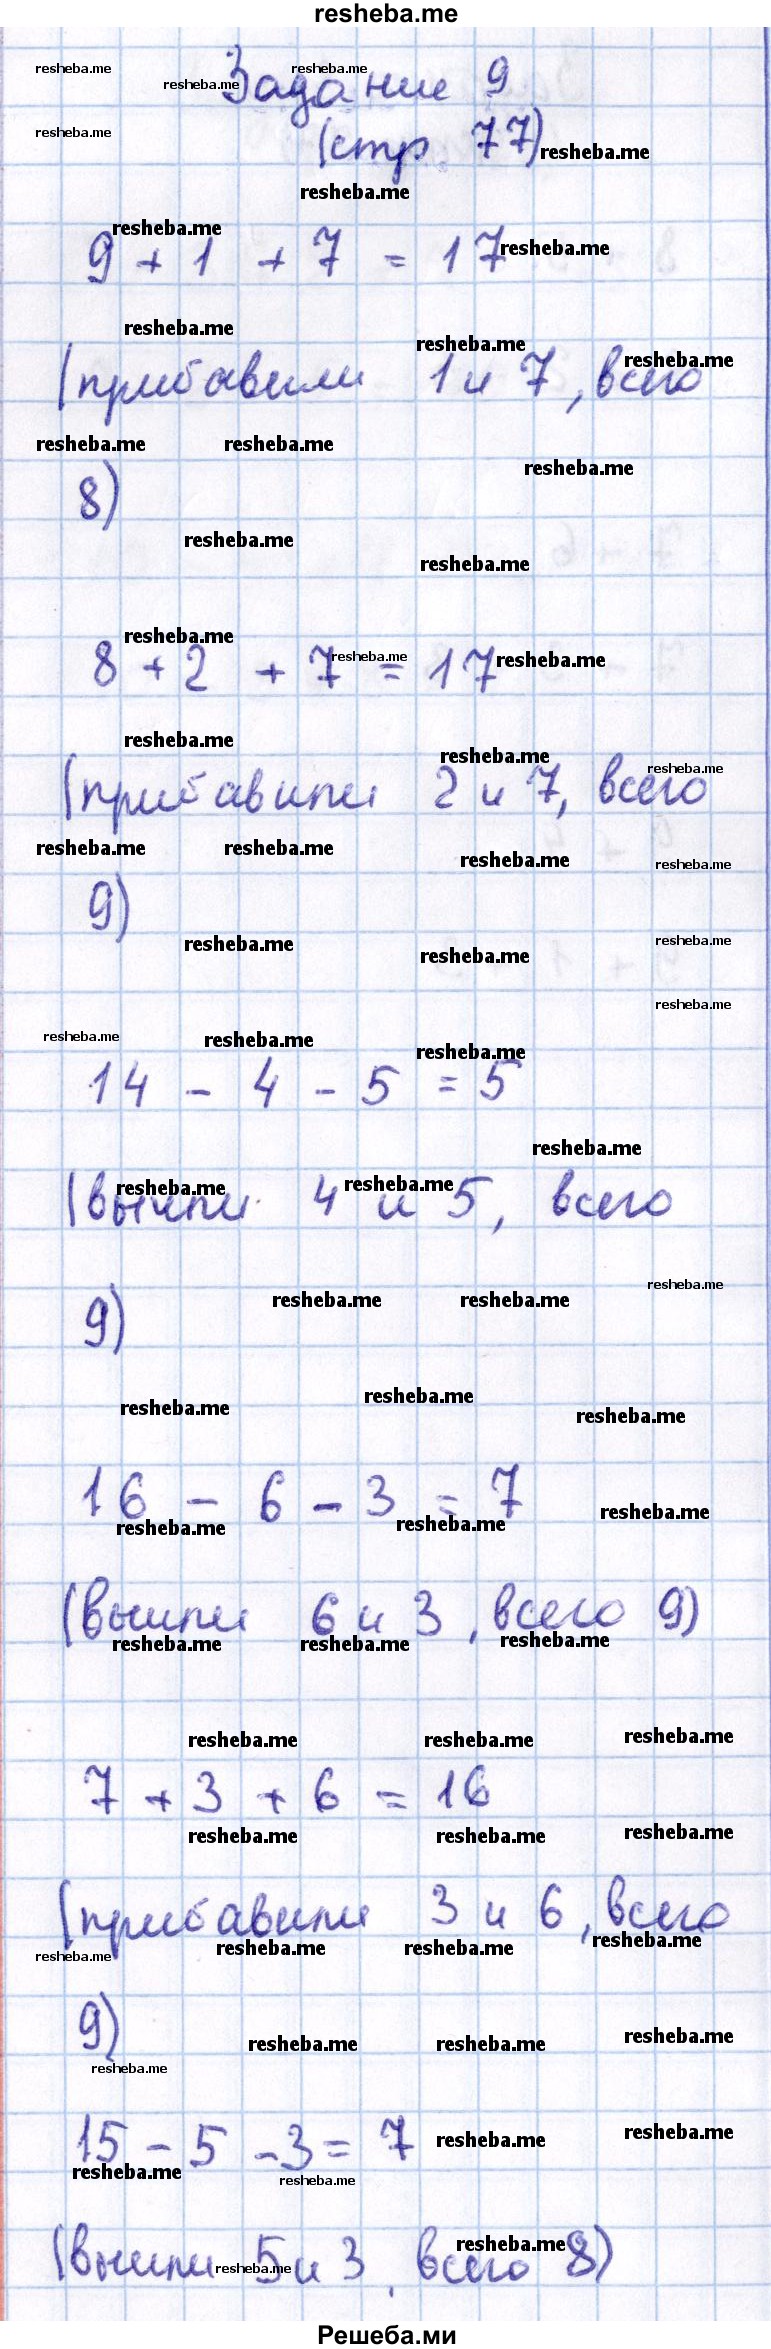 resheba.me
Задание 9
(стр. 77)
9 + 1 + 7 = 17
(прибавили 1 и 7, всего
8)
8 + 2 + 7 = 17
(прибавили 2 и 7, всего
9)
14 - 4 - 5 = 5
(вычли 4 и 5, всего
9)
16 - 6 - 3 = 7
(вычли 6 и 3, всего 9)
7 + 3 + 6 = 16
(прибавили 3 и 6, всего
9)
15 - 5 - 3 = 7
(вычли 5 и 3, всего 8)
Решеба.ми